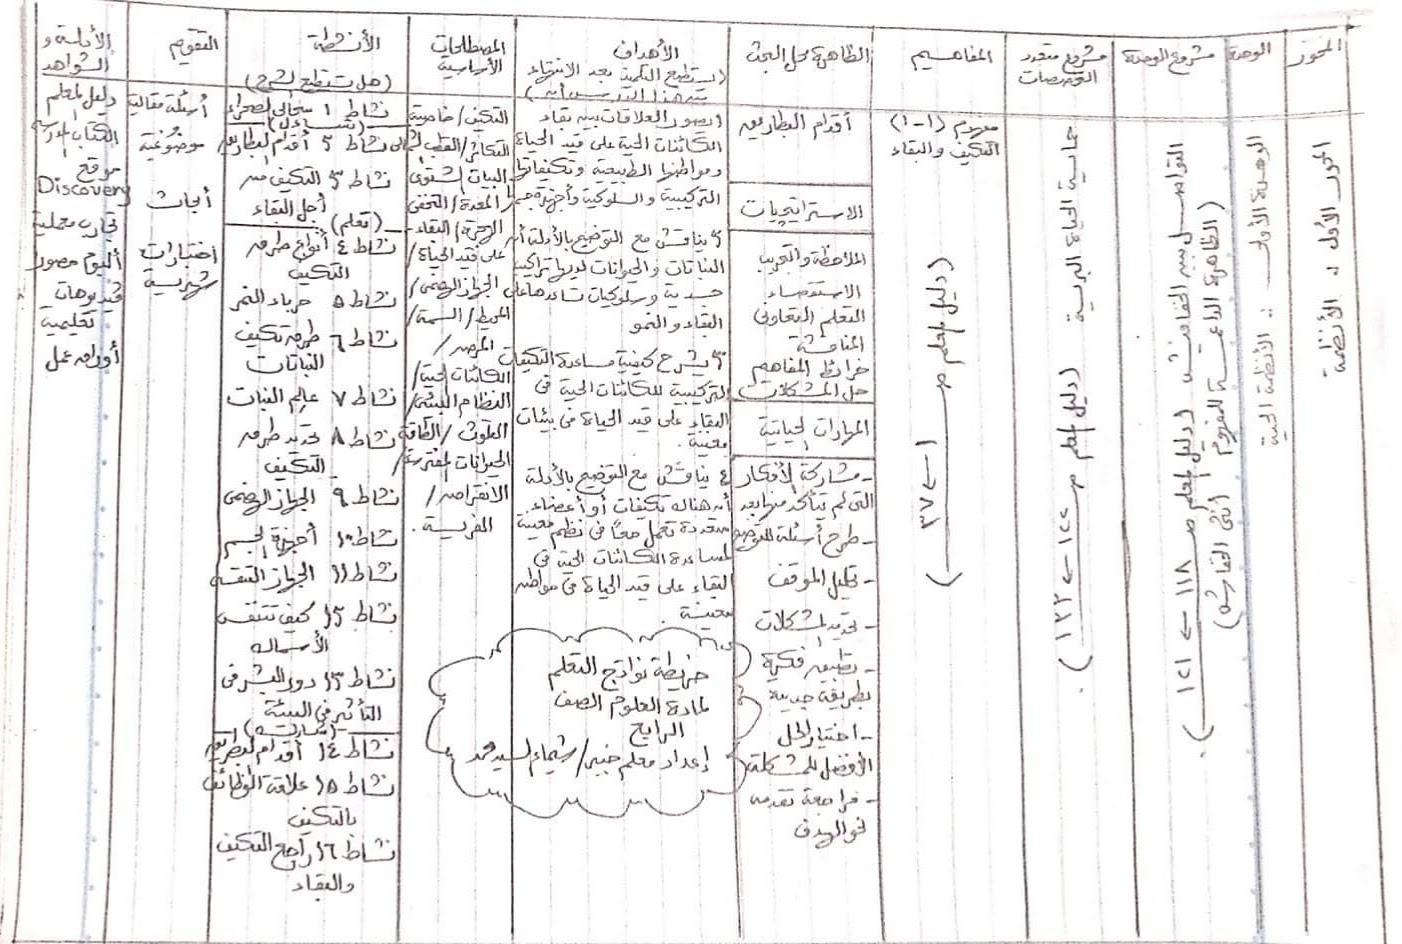 المحور
المحور الأول :. الأنظمة
الوحدة
الوحدة الأولى :. الأنظمة الحية
مشروع الوحدة
التواصل لبنى الخفافيش (دليل المعلم صـ ١١٨ ← ١٢١).
(الظاهرة الداعمة للمفهوم / أنثى الخفاش)
مشروع متعدد
التخصصات
حماية الحياة البرية (دليل المعلم صـ ١٢٢ ← ١٣٣).
المفاهيم
مفهوم (١-١)
التكيف والبقاء
(دليل المعلم صـ ١ ← ٣٧)
الظاهرة محل البحث
أقدام البطاريق
الاستراتيجيات
الملاحظة والتجريب
الاستقصاء
التعلم التعاوني
المناقشة
خرائط المفاهيم
حل المشكلات
المهارات الحياتية
- مشاركة الأفكار
التى لم يتأكد منها بعد
- طرح أسئلة للتوضيح
- تحليل الموقف
- تحديد المشكلات
- تطبيق فكرة
بطريقة جديدة
- اختيار الحل
الأفضل للمشكلة
- مراجعة تقدمه
نحو الهدف
الأهداف
(يستطيع التلميذ بعد الانتهاء
من هذا الدرس أن)
١ يصور العلاقات بين بقاء
الكائنات الحية على قيد الحياة
ومواطنها الطبيعية وتكيفاتها
التركيبية والسلوكية وأجهزة جسمها
٢ يناقش مع التوضيح بالأدلة أن
النباتات والحيوانات لديها تراكيب
جسدية وسلوكيات تساعدها على
البقاء والنمو
٣ يشرح كيفية مساعدة التكيفات
التركيبية للكائنات الحية فى
البقاء على قيد الحياة فى بيئات
معينة.
٤ يناقش مع التوضيح بالأدلة
أن هناك تكيفات أو أعضاء
متعددة تعمل معًا فى نظم معينة
لمساعدة الكائنات الحية فى
البقاء على قيد الحياة فى مواطن
معينة.
خريطة نواتج التعلم
لمادة العلوم الصف
الرابع
إعداد معلم خبير/ شيماء السيد محمد
المصطلحات
الأساسية
التكيف/خاصية
التكاثر/القطب الشمالى
البيات الشتوى
المعدة/التخفى
الرئة/البقاء
على قيد الحياة/
الجهاز الهضمى/
المحيط/السمة/
المرض/
الكائنات الحية/
النظام البيئى/
التلوث/الطاقة
الحيوانات المفترسة/
الانقراض/
الفريسة.
الأنشطة
(هل تستطيع الشرح)
نشاط ١ سحالى الصحراء
(تساءل)
نشاط ٢ أقدام البطاريق
نشاط ٣ التكيف من
أجل البقاء
(تعلم)
نشاط ٤ أنواع طرق
التكيف
نشاط ٥ حرباء النمر
نشاط ٦ طرق تكيف
النباتات
نشاط ٧ عالم النبات
نشاط ٨ تحديد طرق
التكيف
نشاط ٩ الجهاز الهضمى
نشاط ١٠ أجهزة الجسم
نشاط ١١ الجهاز التنفسى
نشاط ١٢ كيف تتنفس
الأسماك
نشاط ١٣ دور البشر فى
التأثير فى البيئة
(شارك)
نشاط ١٤ أقدام البطاريق
نشاط ١٥ علاقة الوظائف
بالتكيف
نشاط ١٦ راجع التكيف
والبقاء
التقويم
أسئلة مقالية
موضوعية
أبحاث
اختبارات
شهرية
الأدلة و
الشواهد
دليل المعلم
الكتاب المدرسى
موقع
Discovery
تجارب معملية
ألبوم مصور
فيديوهات
تعليمية
أوراق عمل